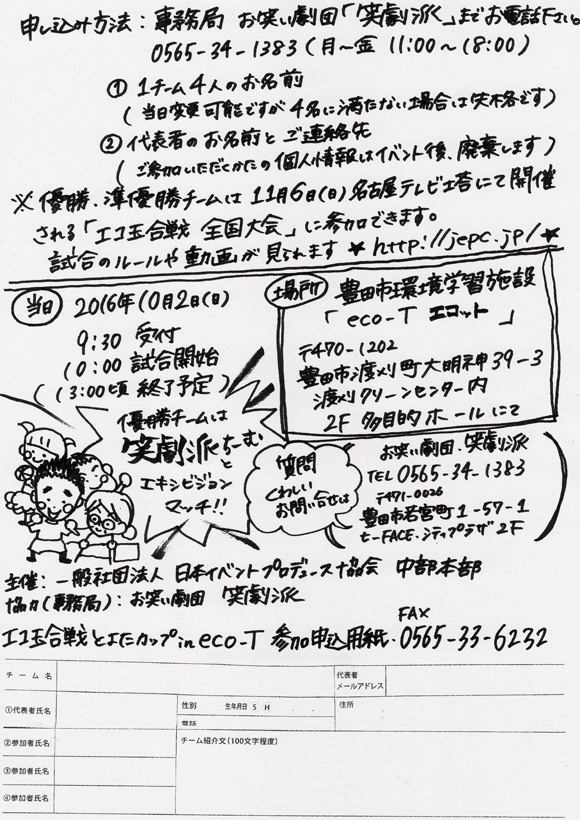 申し込み方法：事務局 お笑い劇団「笑劇派」までお電話下さい。
0565-34-1383（月～金 11:00～18:00）
① 1チーム4人のお名前
（当日変更可能ですが4名に満たない場合は失格です）
② 代表者のお名前とご連絡先
（ご参加いただくかたの個人情報はイベント後、廃棄します）
※優勝、準優勝チームは11月6日(日)名古屋テレビ塔にて開催
される「エコ玉合戦 全国大会」に参加できます。
試合のルールや動画が見られます ★http://jepc.jp/★
当日 2016年10月2日(日)
9:30 受付
10:00 試合開始
（13:00頃 終了予定）
優勝チームは
笑劇派ちーむ
と
エキシビジョン
マッチ!!
場所 豊田市環境学習施設
「eco-T エコット」
〒470-1202
豊田市渡刈町大明神39-3
渡刈クリーンセンター内
2F 多目的ホールにて
質問
くわしい
お問い合せは
お笑い劇団 笑劇派
TEL 0565-34-1383
〒471-0026
豊田市若宮町1-57-1
七-FACE・シティプラザ2F
主催：一般社団法人 日本イベントプロデュース協会 中部本部
協力(事務局)：お笑い劇団 笑劇派
エコ玉合戦とよたカップin eco-T 参加申込用紙・FAX 0565-33-6232
チーム名
代表者
メールアドレス
①代表者氏名
性別 生年月日 S H
電話
住所
②参加者氏名
チーム紹介文(100文字程度)
③参加者氏名
④参加者氏名